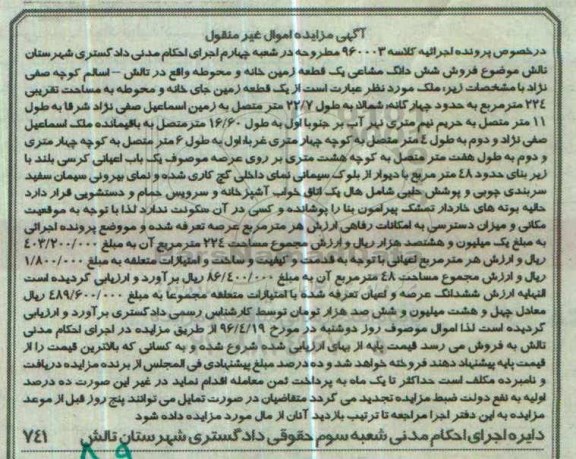 آگهی مزایده اموال غیر منقول
درخصوص پرونده اجرائیه کلاسه ۹۶۰۰۰۳ مطروحه در شعبه چهارم اجرای احکام مدنی دادگستری شهرستان
تالش موضوع فروش شش دانگ مشاعی یک قطعه زمین خانه و محوطه واقع در تالش – اسالم کوچه صفی
نژاد با مشخصات زیر، ملک مورد نظر عبارت است از یک قطعه زمین جای خانه و محوطه به مساحت تقریبی
۲۲۴ مترمربع به حدود چهارگانه: شمالا به طول ۲۲/۷ متر متصل به زمین اسماعیل صفی نژاد شرقا به طول
۱۱ متر متصل به حریم نیم متری نهر آب بر جنوبا اول به طول ۱۶/۶۰ متر متصل به باقیمانده ملک اسماعیل
صفی نژاد و دوم به طول ۴ متر متصل به کوچه چهار متری غربا: اول به طول ۶ متر متصل به کوچه چهار متری
و دوم به طول هفت متر متصل به کوچه هشت متری بر روی عرصه موصوف یک باب اعیانی کرسی بلند با
زیر بنای حدود ۴۸ متر مربع با دیوار از بلوک سیمانی نمای داخلی گچ کاری شده و نمای بیرونی سیمان سفید
سربندی چوبی و پوشش حلبی شامل هال یک اتاق خواب آشپزخانه و سرویس حمام و دستشویی قرار دارد
حالیه بوته های خاردار تمشک پیرامون بنا را پوشانده و کسی در آن سکونت ندارد لذا با توجه به موقعیت
مکانی و میزان دسترسی به امکانات رفاهی ارزش هر مترمربع عرصه تعرفه شده و موضوع پرونده اجرائی
به مبلغ یک میلیون و هشتصد هزار ریال و ارزش مجموع مساحت ۲۲۴ مترمربع آن به مبلغ ۴۰۳/۲۰۰/۰۰۰
ریال و ارزش هر متر مربع اعیانی با توجه به قدمت و کیفیت و ساخت و امتیازات متعلقه به مبلغ ۱/۸۰۰/۰۰۰
ریال و ارزش مجموع مساحت ۴۸ مترمربع آن به مبلغ ۸۶/۴۰۰/۰۰۰ ریال برآورد و ارزیابی گردیده است
النهایه ارزش ششدانگ عرصه و اعیان تعرفه شده با امتیازات متعلقه مجموعاً به مبلغ ۴۸۹/۶۰۰/۰۰۰ ریال
معادل چهل و هشت میلیون و شش صد هزار تومان توسط کارشناس رسمی دادگستری برآورد و ارزیابی
گردیده است لذا اموال موصوف روز دوشنبه در مورخ ۹۶/۴/۱۹ از طریق مزایده در اجرای احکام مدنی
تالش به فروش می رسد قیمت پایه از بهای ارزیابی شده شروع شده و به کسانی که بالاترین قیمت را از
قیمت پایه پیشنهاد دهند فروخته خواهد شد و ده درصد مبلغ پیشنهادی فی المجلس از برنده مزایده دریافت
و نامبرده مکلف است حداکثر تا یک ماه به پرداخت ثمن معامله اقدام نماید در غیر این صورت ده درصد
اولیه به نفع دولت ضبط مزایده تجدید می گردد متقاضیان در صورت تمایل می توانند پنج روز قبل از موعد
مزایده به این دفتر اجرا مراجعه تا ترتیب بازدید آنان از مال مورد مزایده داده شود
دایره اجرای احکام مدنی شعبه سوم حقوقی دادگستری شهرستان تالش ۷۴۱